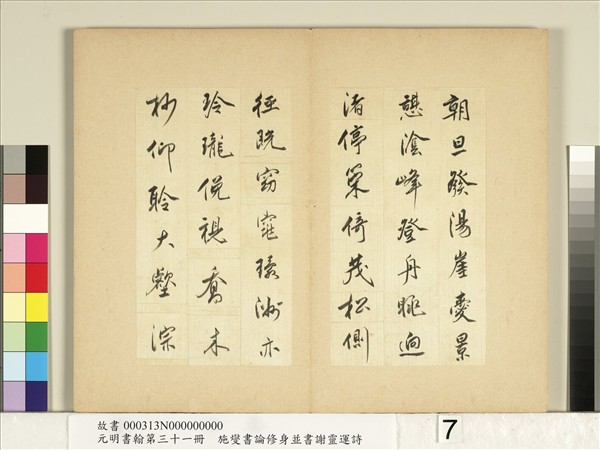 朝旦發陽崖景
憩陰峰登舟眺迥
渚停策倚茂松側
徑既窈窕環洲亦
玲瓏俛視喬木
杪仰聆大壑淙
故書 000313N000000000
元明書翰第三十一冊 施燮書論修身並書謝靈運詩
7